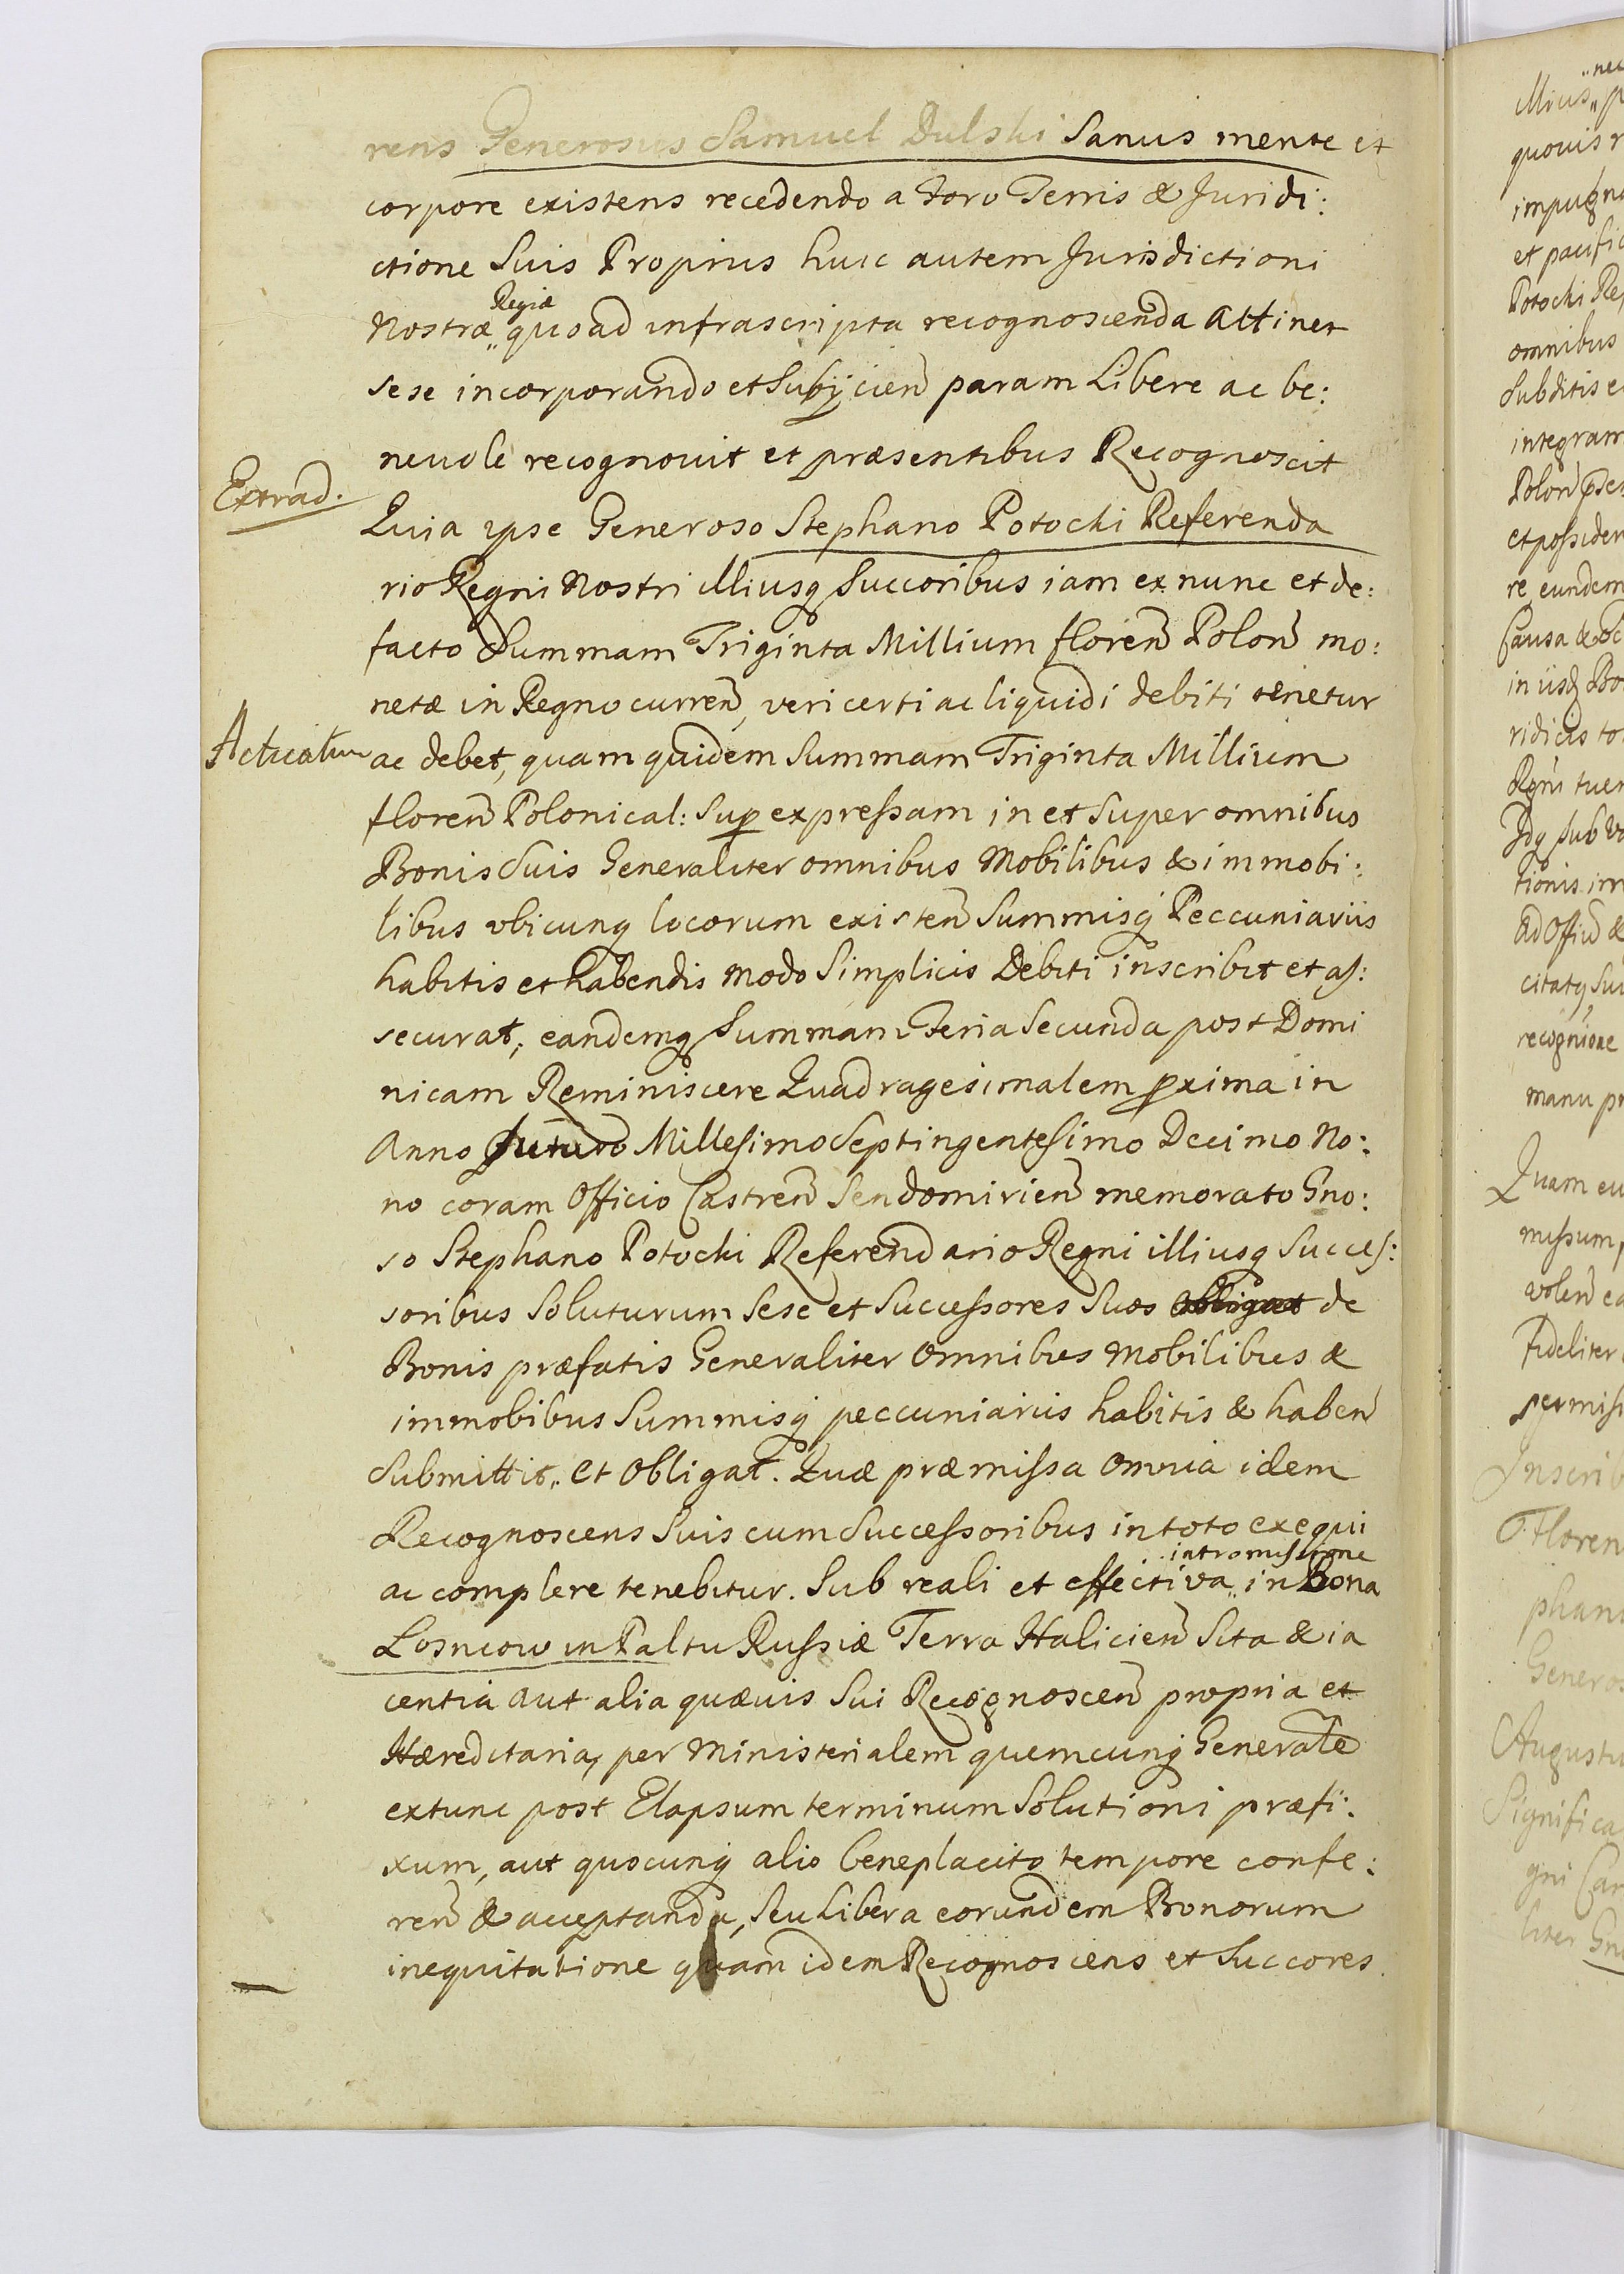 rens Generosus Samuel Dulski Sanus mente et
corpore existens recedendo a Foro Terris & Juridi:
ctione Suis Proprius huic autem Jurisdictioni
Regiæ
Nostræ quoad infrascripta recognoscenda attinet
sese incorporando et Subijcien param Libere ac be:
neuole recognouit et præsentibus Recognoscit
Extrad.
Quia ipse Generoso Stephano Potocki Referenda
rio Regni Nostri illiusq Succoribus iam ex nunc et de:
facto Summam Triginta Millium floren Polon mo:
netæ in Regno curren, veri certi ac liquidi debiti tenetur
Acticatum
ac debet, quam quidem Summam Triginta Millium
floren Polonical: Sup expressam in et Super omnibus
Bonis Suis Generaliter omnibus Mobilibus & immobi:
libus vbicunq locorum existen Summisq Peccuniariis
habitis et habendis modo Simplicis Debiti inscribit et as:
securat, eandemq Summam Feria Secunda post Domi
nicam Reminiscere Quadragesimalem pxima in
Anno futuro Millesimo Septingentesimo Decimo No:
no coram Officio Castren Sendomirien memorato Gno:
so Stephano Potocki Referendario Regni illiusq Succes:
soribus Soluturum Sese et Successores Suos obligat de
Bonis præfatis Generaliter omnibus Mobilibus &
immobibus Summisq peccuniariis habitis & haben
Submittit, et Obligat. Quæ præmissa omnia idem
Recognoscens Suis cum Successoribus in toto exequi
intromissione
ac complere tenebitur. Sub reali et effectiva in Bona
Losniow in Paltu Russiæ Terra Halicien Sita & ia
centia aut alia quævis Sui Recognoscen propria et
Hæreditaria, per Ministerialem quemcunq Generale
extunc post Elapsum terminum Solutioni præfi:
xum, aut quocunq alio beneplacito tempore confe:
ren & acceptanda, Seu Libera eorundem Bonorum
inequitatione quam idem Recognoscens et Succores
nec
illius
quouis
impugna
et pacific
Potocki Re
omnibus
Subditis e
integram
Polon
et possiden
re eundem
Causa &
in iisq Bo
ridicis to
Rgni tuer
Idq sub
tionis
ad Offiu &
citatq Su
recognione
manu pr
Quam eu
missum
volen
fideliter
permisi
Inscrib
Floren
phan
Genero
August
Significa
gni Ca
liter Gn